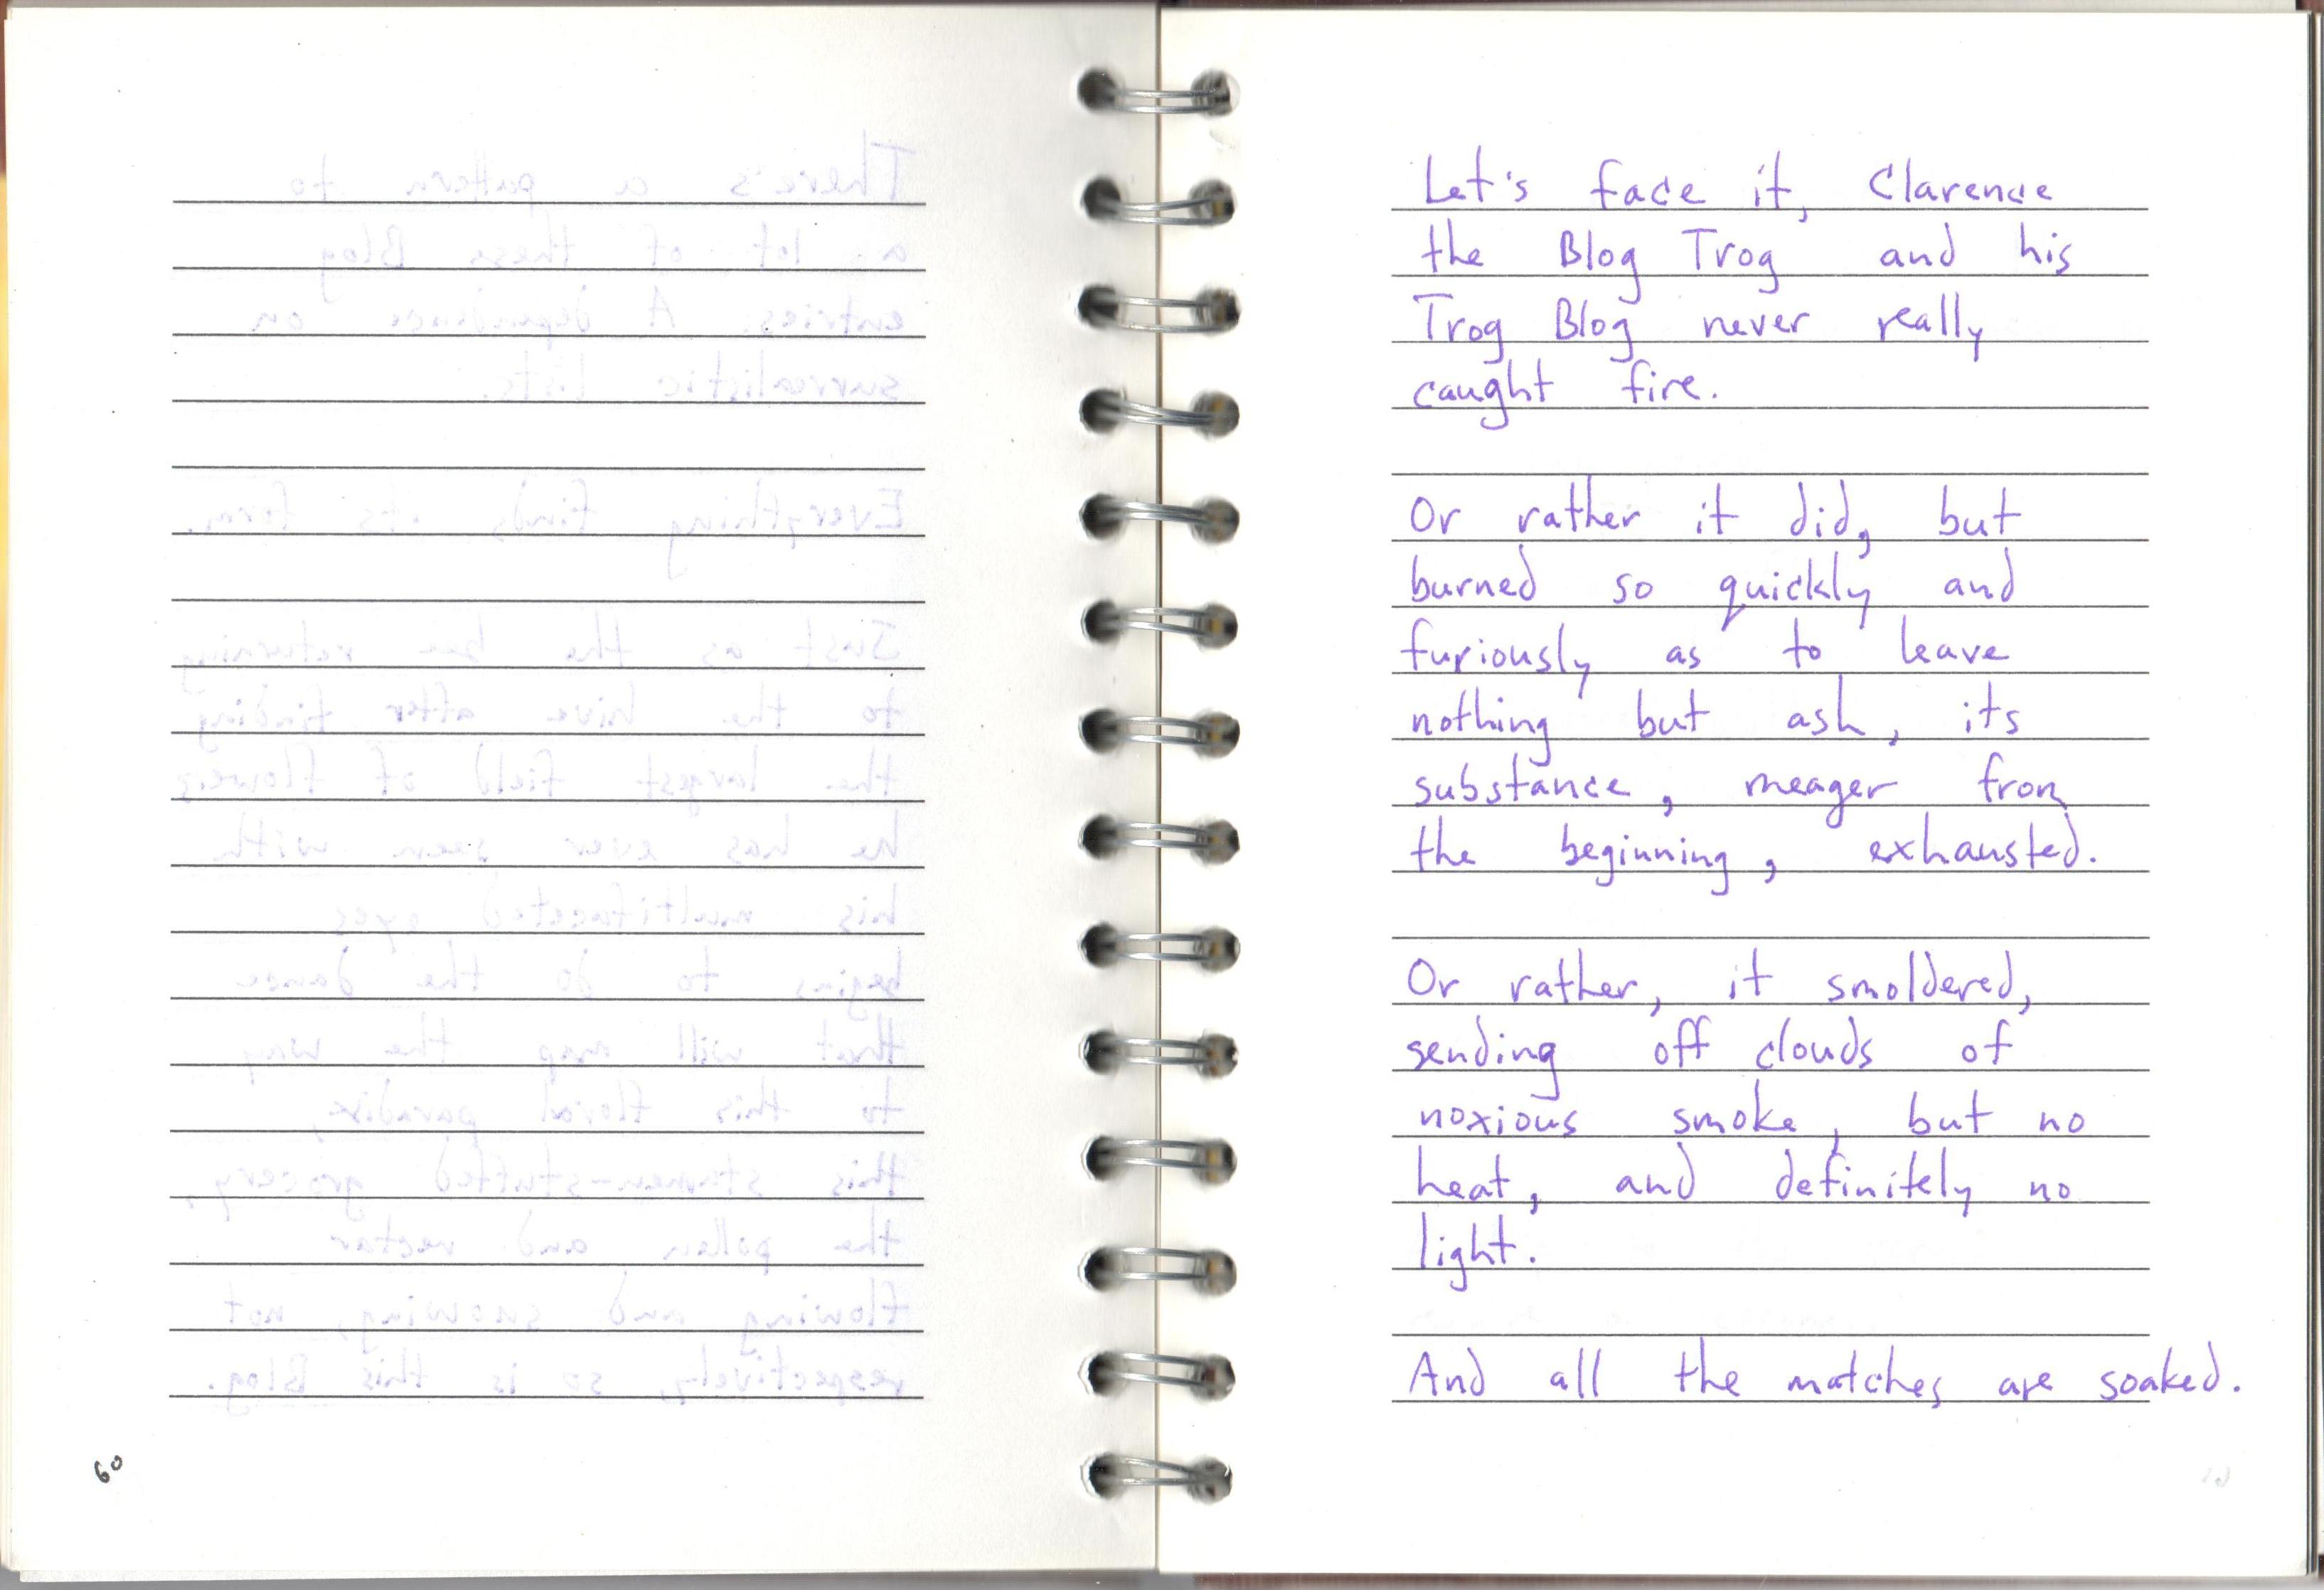 60
Let's face it, Clarence
the Blog Trog and his
Trog Blog never really
caught fire.
Or rather it did, but
burned so quickly and
furiously as to leave
nothing but ash, its
substance, meager from
the beginning, exhausted.
Or rather, it smoldered,
sending off clouds of
noxious smoke, but no
heat, and definitely no
light.
And all the matches are soaked.